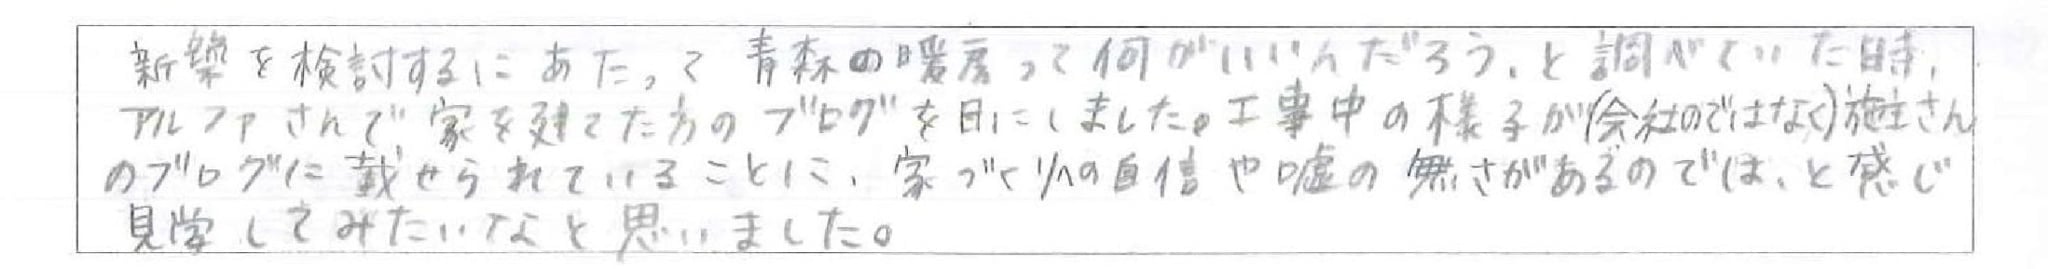 新築を検討するにあたって青森の暖房って何がいいんだろう、と調べていた時、
アルファさんで家を建てた方のブログを目にしました。工事中の様子が(会社のではなく)施主さん
のブログに載せられていることに、家づくりへの自信や嘘の無さがあるのでは、と感じ
見学してみたいなと思いました。